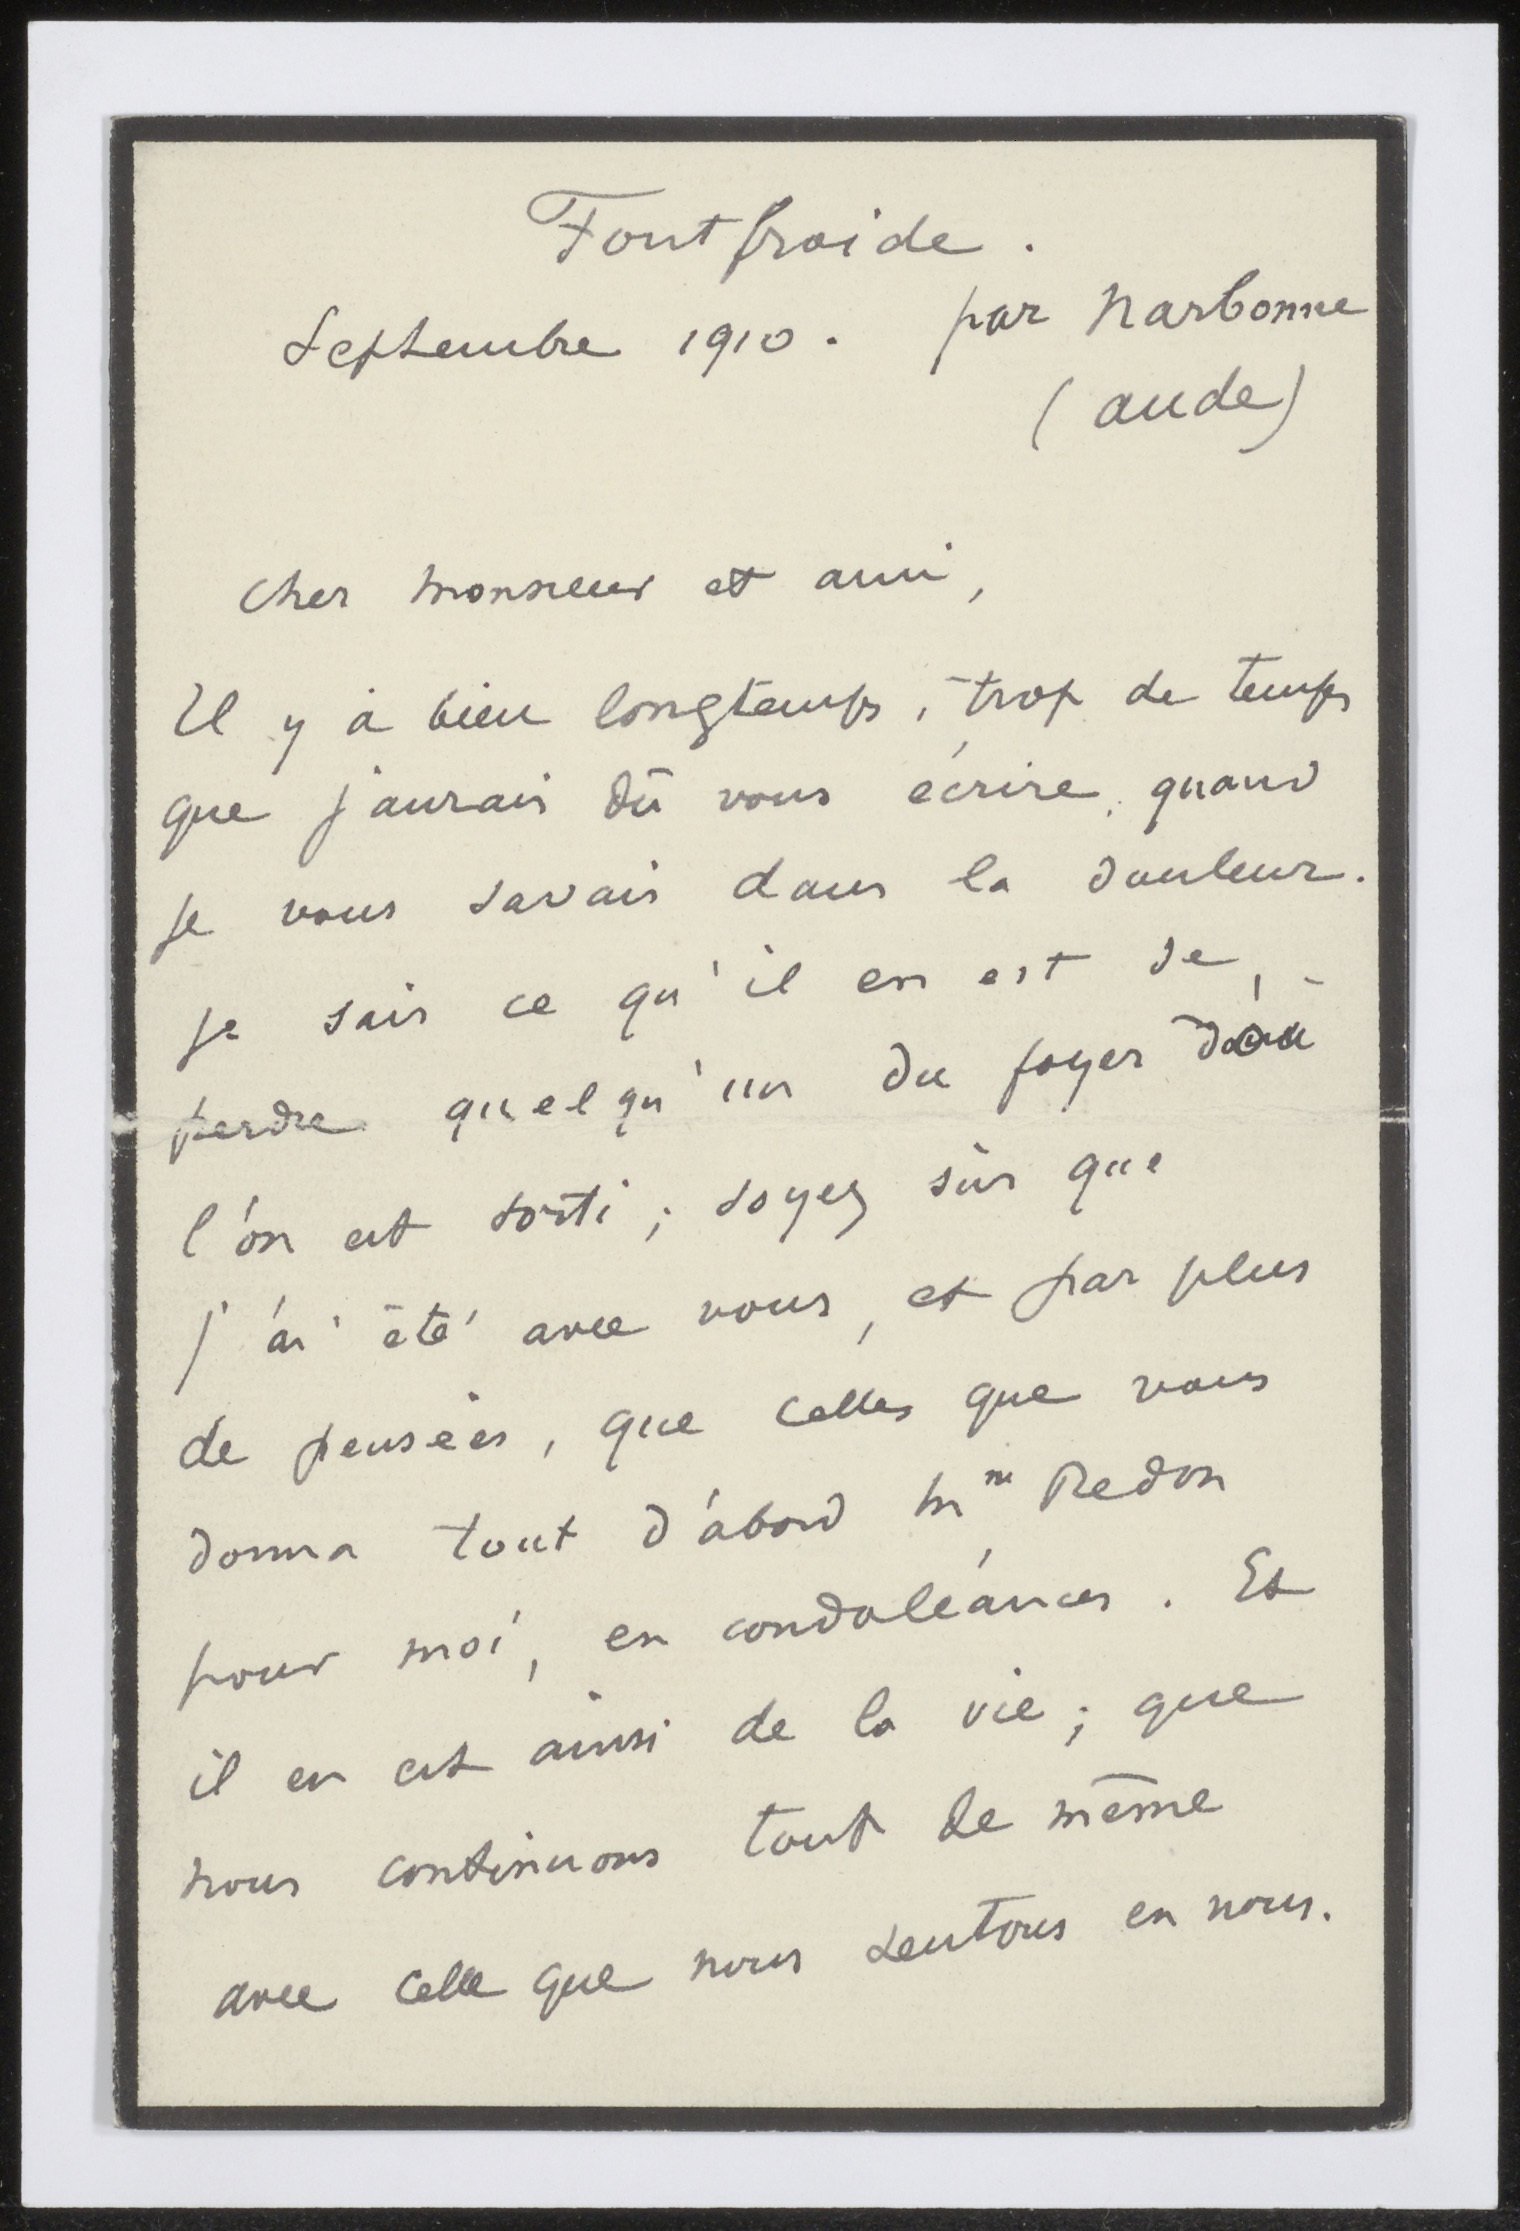 Fontfroide.
Septembre 1910. par Narbonne
(aude)
Cher monsieur et ami,
Il y a bien longtemps, trop de temps
que j'aurais dû vous écrire, quand
je vous savais dans la douleur.
je sais ce qu'il en est de
perdre quelqu'un du foyer d'où
l'on est sorti; soyez sûr que
j'ai été avec vous, et par plus
de pensées, que celles que vous
donna tout d'abord Mme Redon
pour moi, en condoléances. Et
il en est ainsi de la vie; que
nous continuons tout de même
avec celle que nous sentons en nous.